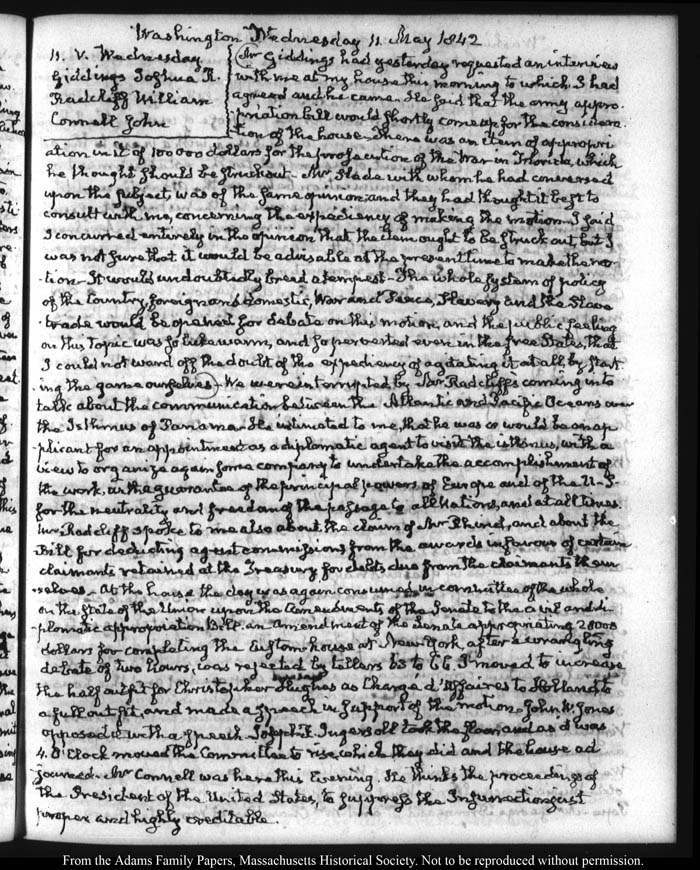 Washington Wednesday 11. May 1842
11. V. Wednesday
Giddings Joshua R.
Radcliff William
Connell John
Mr Giddings had yesterday requested an interview
with me at my house this morning to which I had
agreed and he came. He said that the army appro-
priation bill would shortly come up for the considera-
tion of the house. There was an item of appropri-
ation in it of 100 000 dollars for the prosecution of the War in Florida, which
he thought should be struck out. Mr Slade with whom he had conversed
upon the subject, was of the same opinion, and they had thought it best to
consult with me, concerning the expediency of making the motion. I said
I concurred entirely in the opinion that the item ought to be struck out, but I
was not sure that it would be advisable at the present time to make the mo-
-tion. It would undoubtedly breed a tempest. The whole system of policy
of the Country, foreign and domestic, War and Peace, Slavery and the Slave
trade would be opened for debate on this motion, and the public feeling
on this topic was so lukewarm, and so perverted even in the free States, that
I could not ward off the doubt of the expediency of agitating it at all, by start-
ing the game ourselves. We were interrupted by Mr Radcliff's coming in to
talk about the communication between the Atlantic and Pacific Oceans over
the Isthmus of Panama. He intimated to me, that he was or would be an ap-
-plicant for an appointment as a diplomatic agent to visit the isthmus, with a
view to organize again some company to undertake the accomplishment of
the work, under the guarantee of the principal powers of Europe and of the U. S.
for the neutrality and freedom of the passage to all Nations, and at all times.
Mr Radcliff spoke to me also about the claim of Mr Rhind, and about the
Bill for deducting agent commissions from the awards in favour of certain
claimants retained at the Treasury for debts due from the claimants them-
-selves. At the house the day was again consumed in committee of the whole
on the State of the Union upon the Amendments of the Senate to the civil and di-
plomatic appropriation Bill. an Amendment of the Senate appropriating 28000
dollars for completing the Custom house at New York, after a wrangling
debate of two hours, was rejected by tellers 63 to 66. I moved to increase
the half outfit for Christopher Hughes as Chargé d'Affaires to Holland, to
a full outfit, and made a speech in support of the motion. John W. Jones
opposed it with a speech Joseph R. Ingersoll took the floor, and as it was
4. O'Clock moved the Committee to rise, which they did and the house ad
journed. Mr Connell was here this Evening. He thinks the proceedings of
the President of the United States, to suppress the Insurrection just
proper and highly creditable.
From the Adams Family Papers, Massachusetts Historical Society. Not to be reproduced without permission.